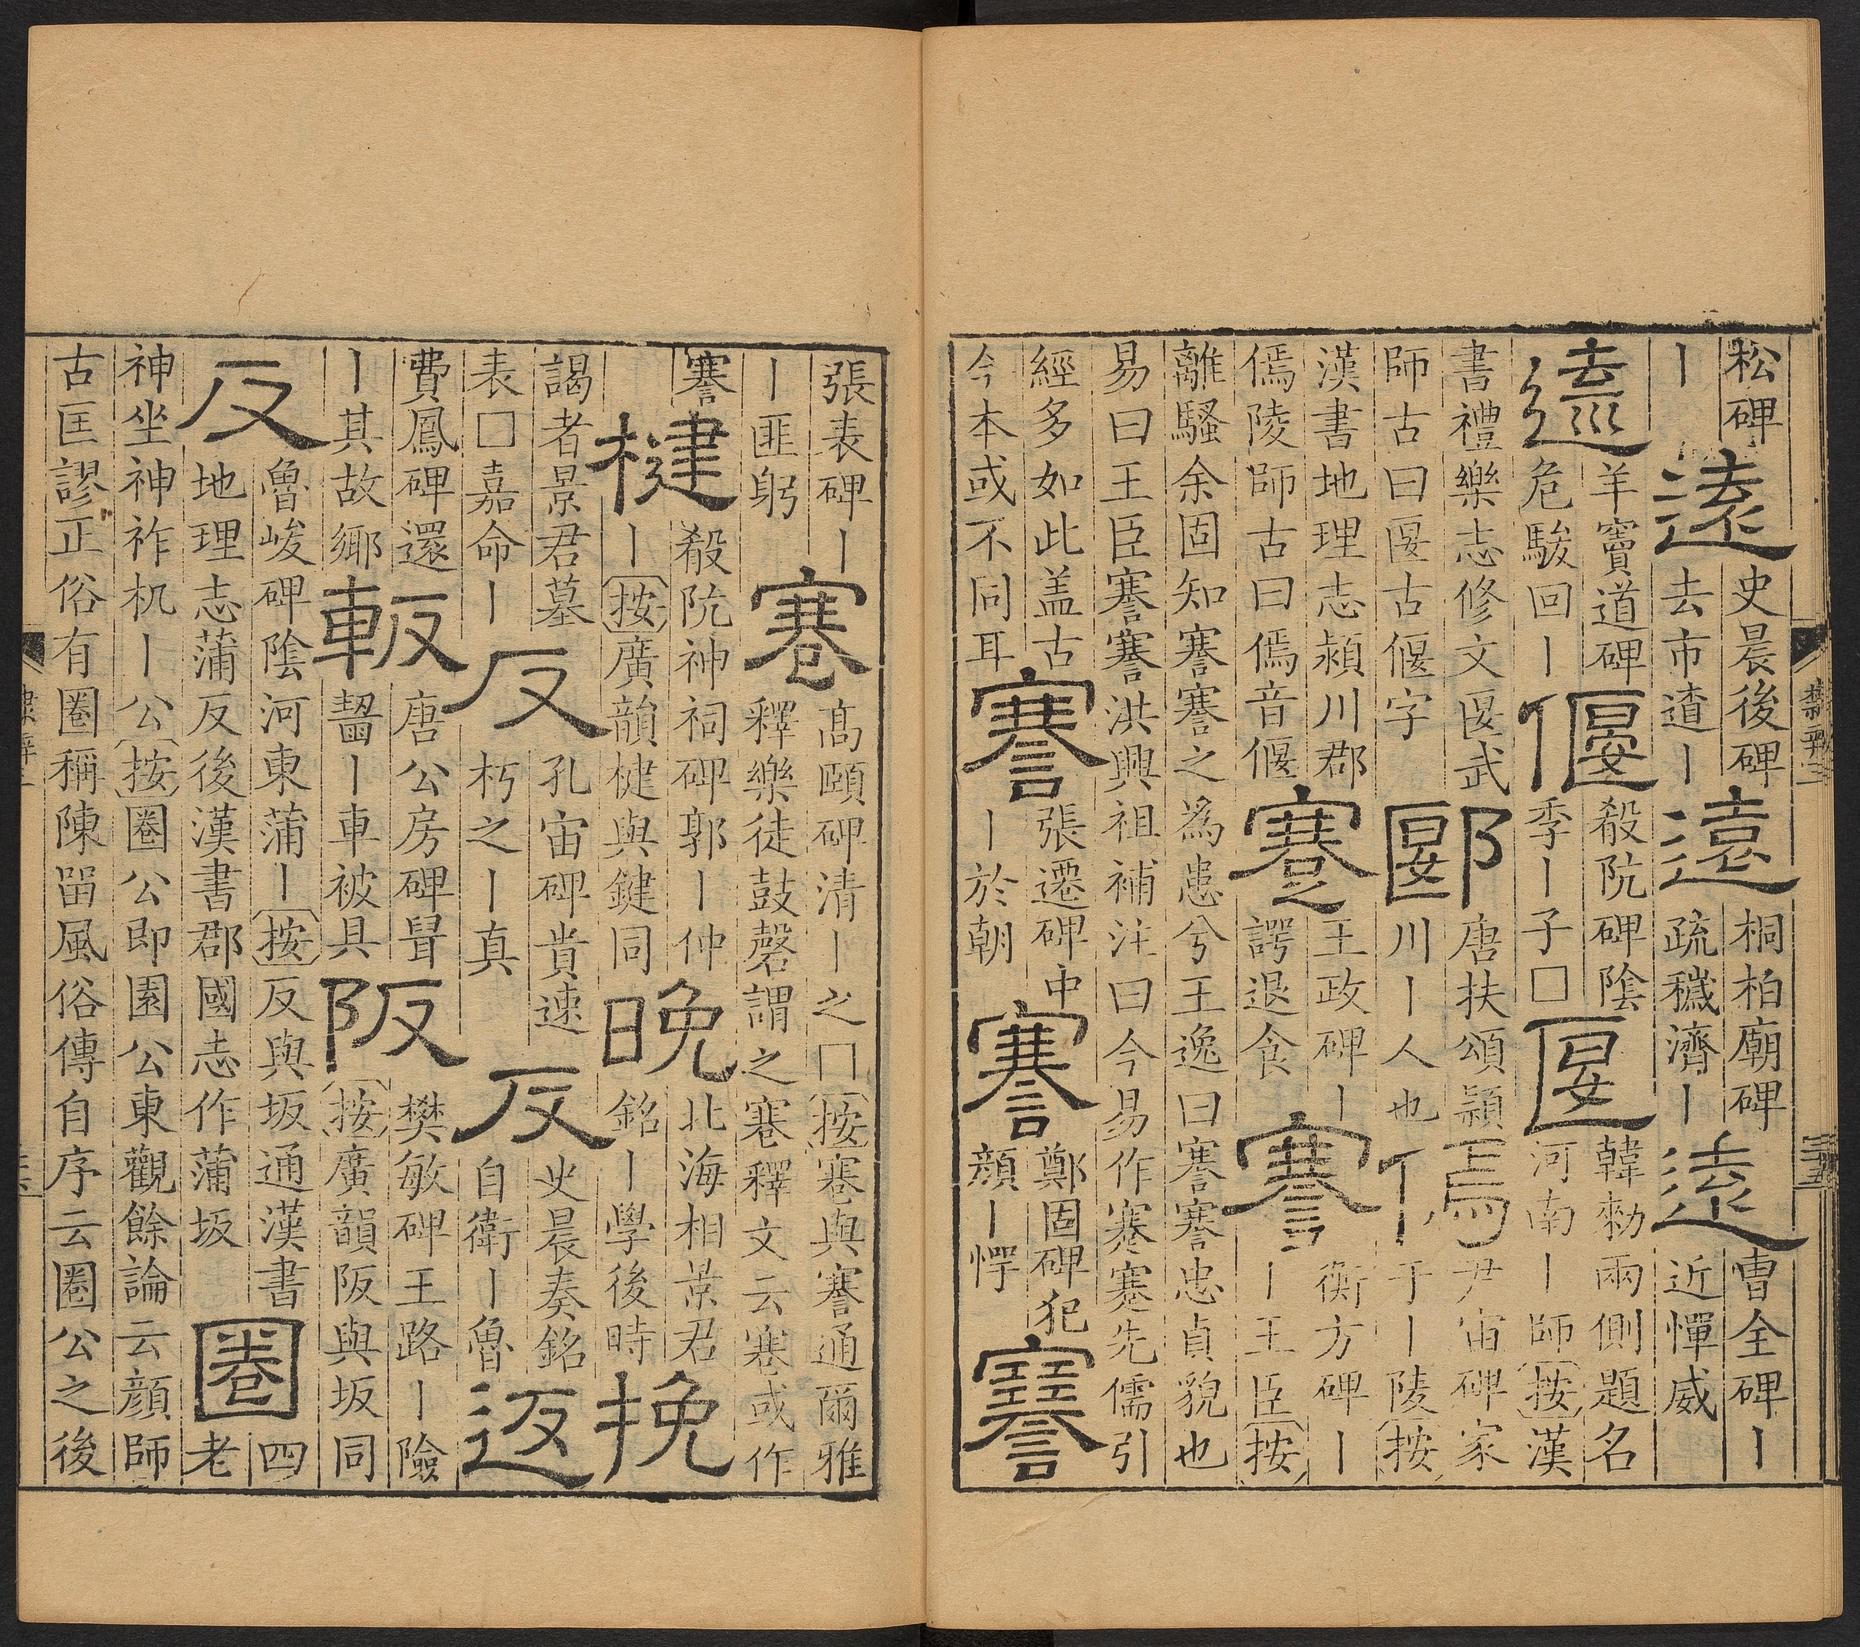 松碑
丨
遠
史晨後碑
去市遼丨
遠
桐柏廟碑
疏穢濟丨
遠
曹全碑丨
近憚威
遠
羊竇道碑
危駿回丨
偃
殽阬碑陰
季丨子□
匽
韓勑兩側題名
河南丨師按漢
書禮樂志修文匽武
師古曰匽古偃字
郾
唐扶頌潁
川丨人也
傿
尹宙碑家
于丨陵按
漢書地理志潁川郡
傿陵師古曰傿音偃
蹇
王政碑丨
諤退食
謇
衡方碑丨
丨王臣按
離騷余固知謇謇之為患兮王逸曰謇謇忠貞貌也
易曰王臣謇謇洪興祖補注曰今易作蹇蹇先儒引
經多如此盖古
今本或不同耳
謇
張遷碑中
丨於朝
謇
鄭固碑犯
顔丨愕
謇
張表碑丨
丨匪躬
寋
高頤碑清丨之□按寋與謇通爾雅
釋樂徒鼓磬謂之寋釋文云寋或作
謇
楗
殽阬神祠碑郭丨仲
丨按廣韻楗與鍵同
晚
北海相景君
銘丨學後時
挽
謁者景君墓
表□嘉命丨
反
孔宙碑貴速
朽之丨真
反
史晨奏銘
自衛丨魯
返
費鳳碑還
丨其故鄉
䡊
唐公房碑鼠
齧丨車被具
阪
樊敏碑王路丨險
按廣韻阪與坂同
反
魯峻碑陰河東蒲丨按反與坂通漢書
地理志蒲反後漢書郡國志作蒲坂
圈
四
老
神坐神祚机丨公按圈公即園公東觀餘論云顔師
古匡謬正俗有圈稱陳留風俗傳自序云圈公之後